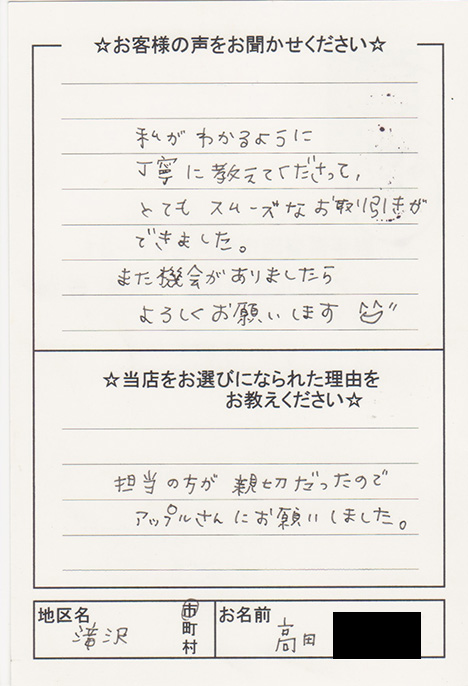 ☆お客様の声をお聞かせください☆
私がわかるように
丁寧に教えてくださって、
とてもスムーズなお取り引きが
できました。
また機会がありましたら
よろしくお願いします
☆当店をお選びになられた理由を
お教えください☆
担当の方が親切だったので
アップルさんにお願いしました。
地区名 滝沢 市町村
お名前 高田